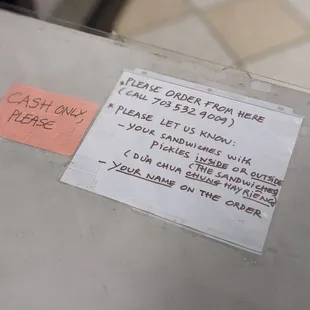 CASH ONLY,
PLEASE
* PLEASE ORDER FROM HERE
(CALL 703 532 9009)
* PLEASE LET US KNOW:
- YOUR SANDWICHES with
Pickles INSIDE OR OUTSIDE
(THE SANDWICHES
(DƯA CHUA CHUNG HAY RIENG)
- YOUR NAME ON THE ORDER